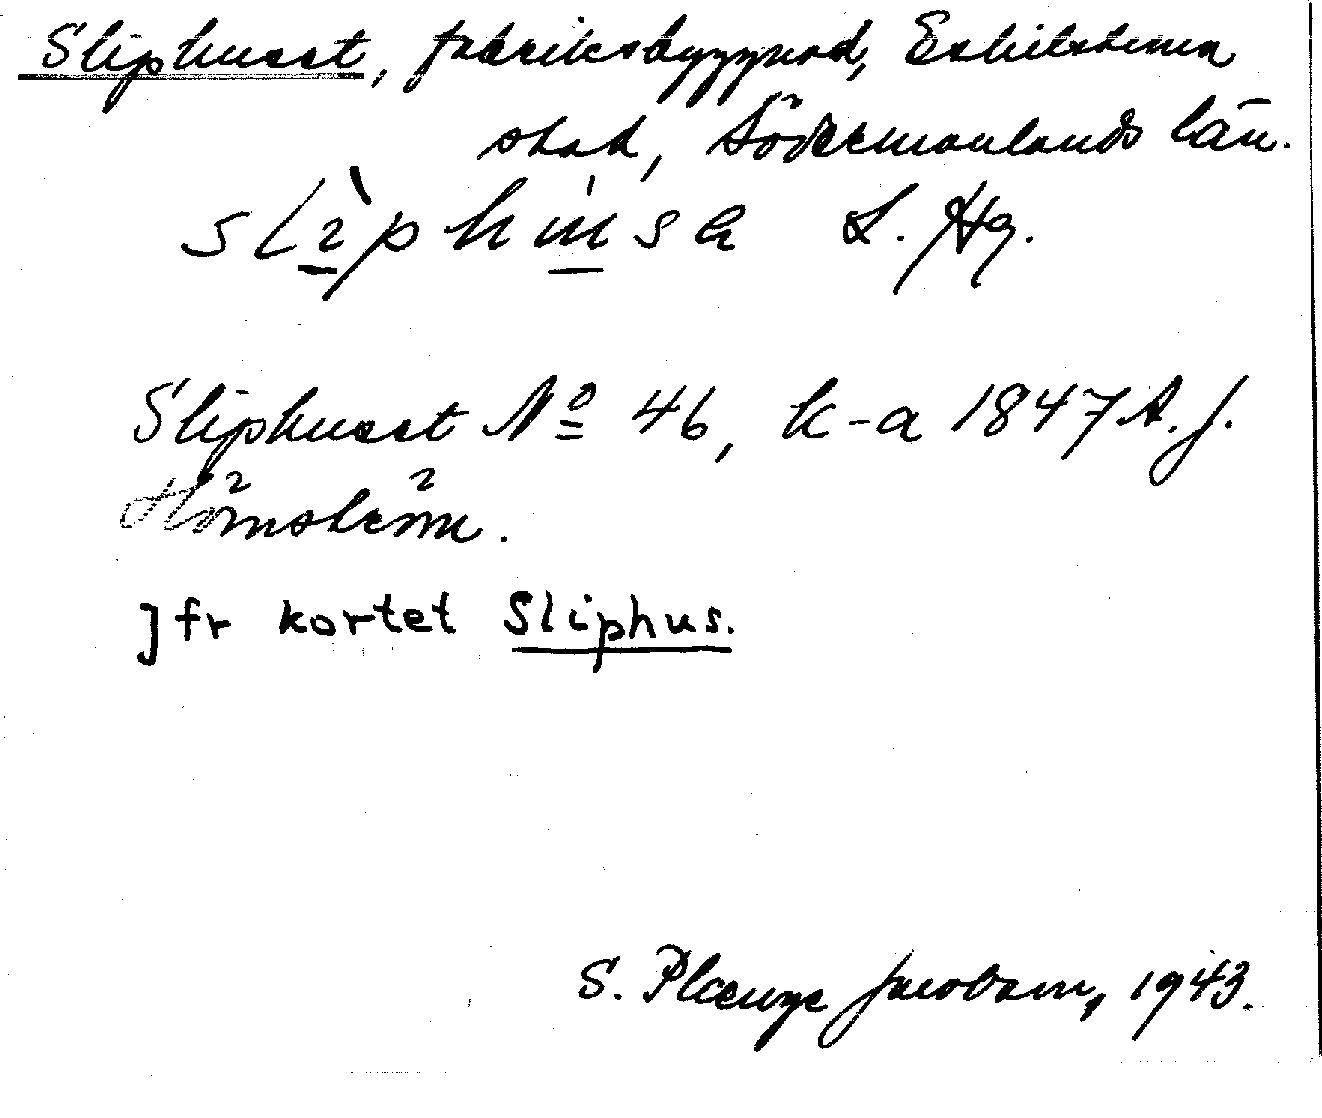 Sliphuset, fabriksbyggnad, Eskilstuna
stad, Södermanlands län.
S. Hg.
Sliphuset Nº 46, k-a 1847 A. J.
jfr kortet Sliphus.
S. Plænge Jacobson, 1943.